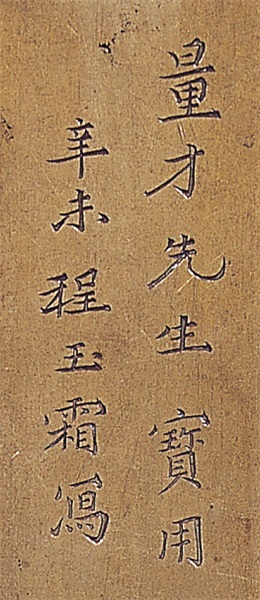 量才先生寶用
辛未程玉霜寫